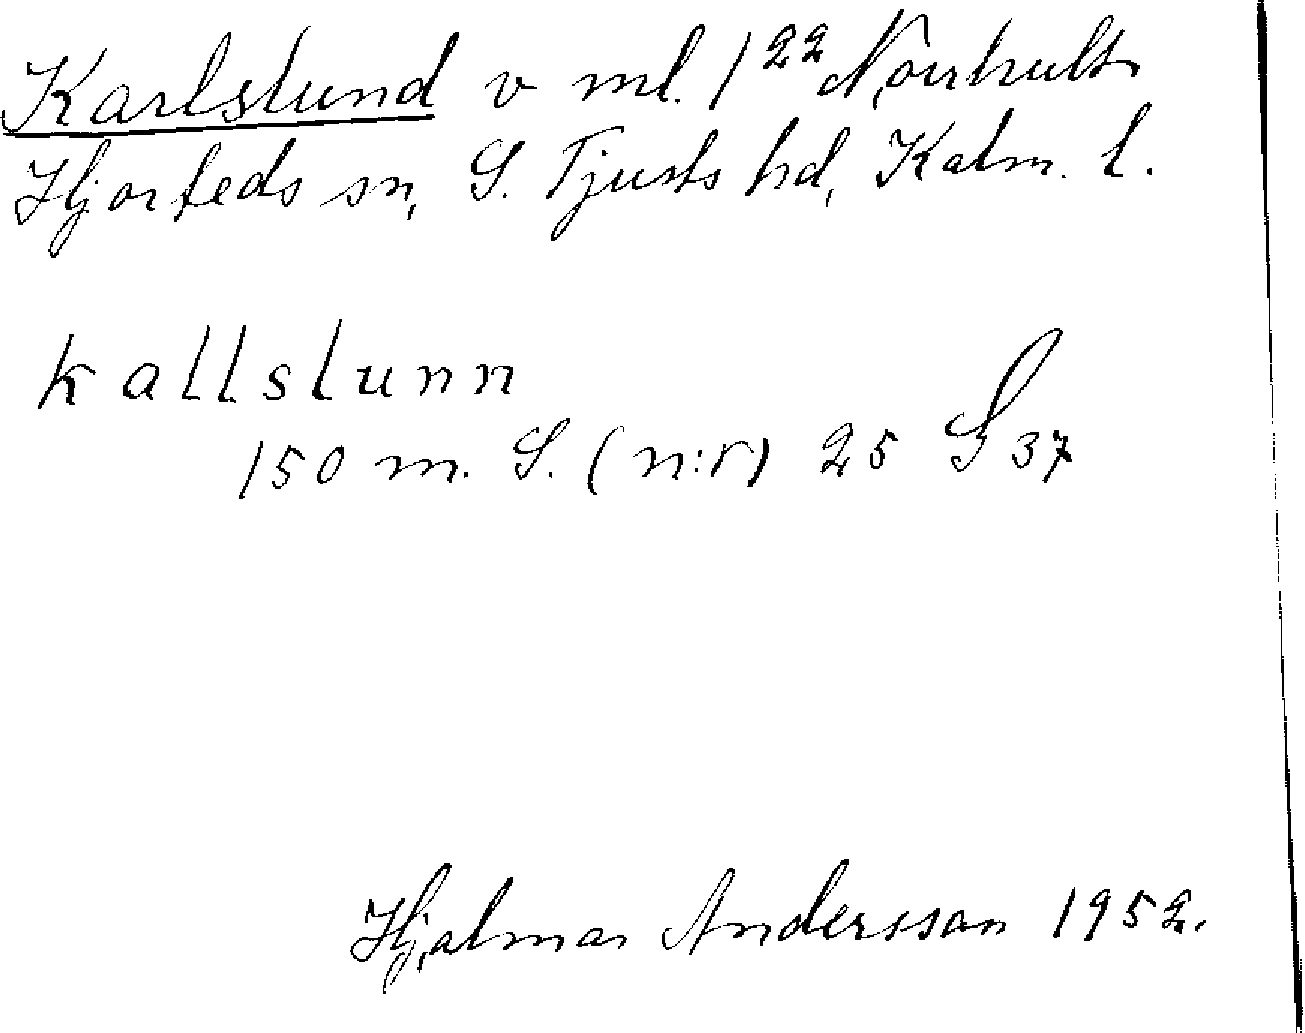 Karlslund v ml. 1²² Norrhult
Hjorteds sn, S. Tjusts hd, Kalm. l.
kallslunn
150 m. S. (n:r) 25 S 37
Hjalmar Andersson 1952.